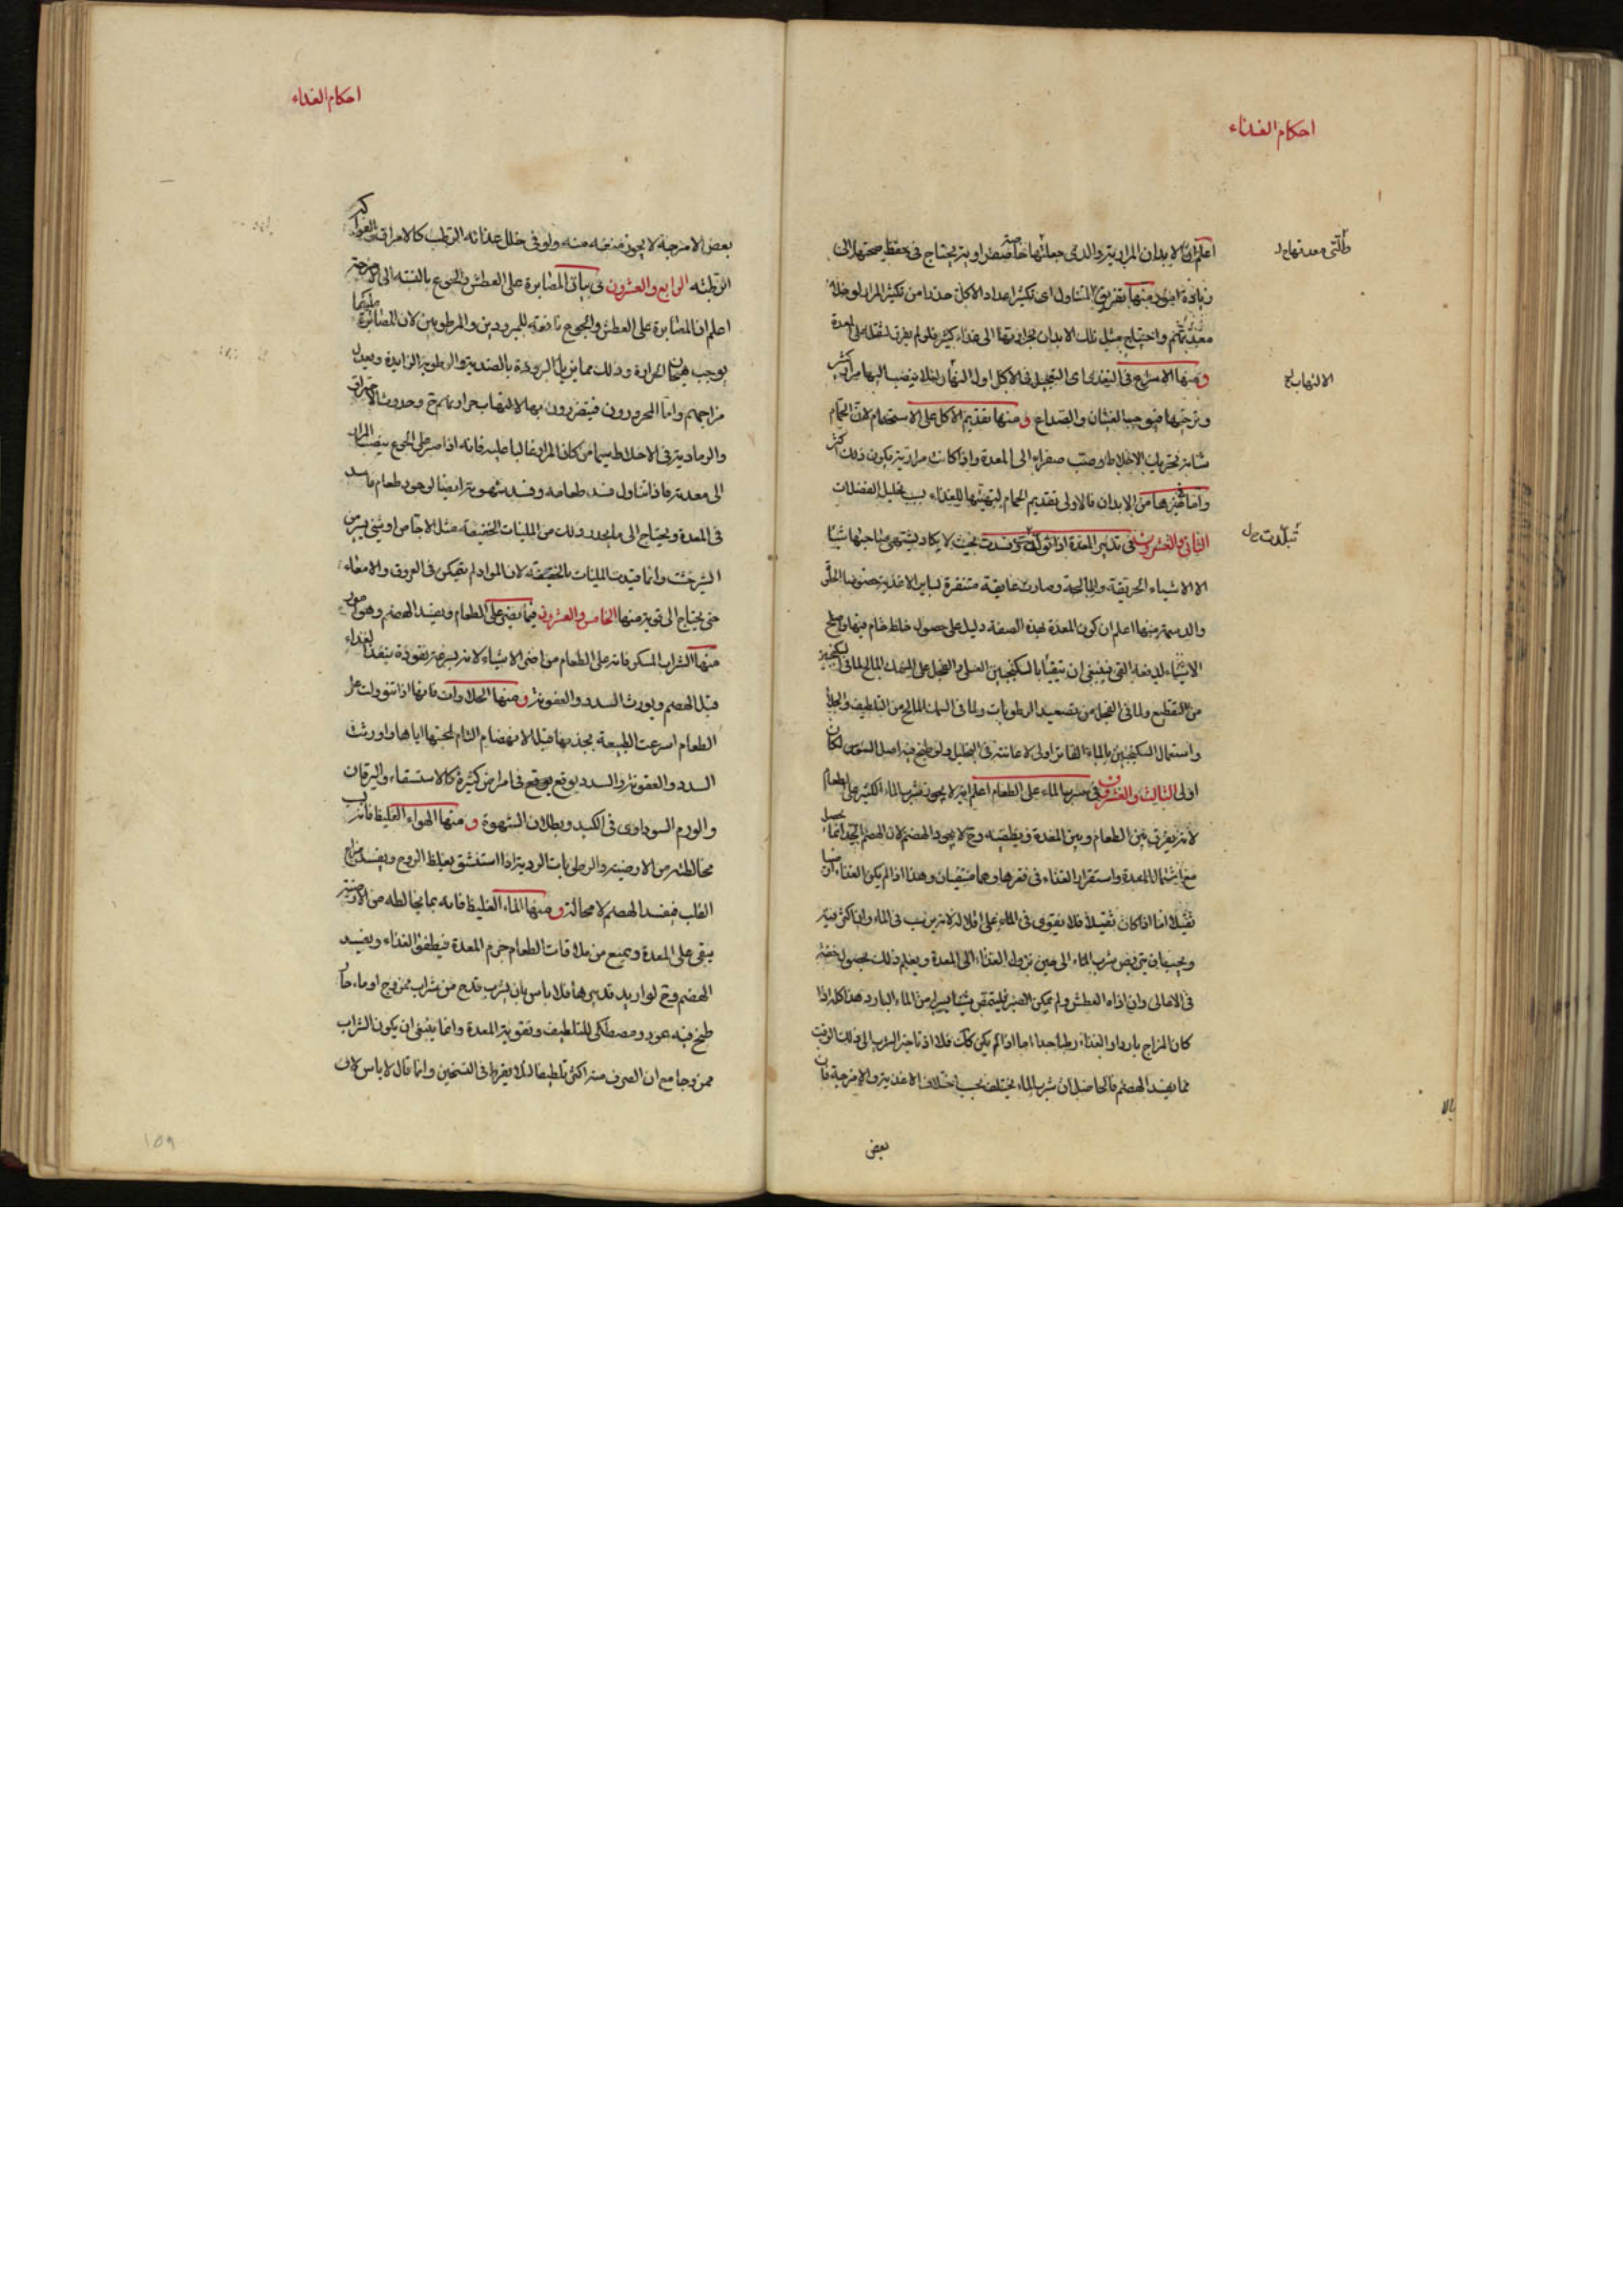 احكام الغذاء
اعلم ان الابدان المرارية والذى جعلتها صفراوية يحتاج فى حفظ صحتها الى
زيادة امور منها تفريق المتناول اى تكثير اعداد الاكل حذرا من تكثر المرار لو خلت
معدتهم واحتياج مثل تلك الابدان لحرارتها الى غذاء كثير فلو لم يفرق لثقل على المعدة
ومنها الاسراع فى التغدى اى التعجيل فى الاكل اول النهار لئلا ينصب اليها مرار كثير
فيوجب الغثيان والصداع ومنها تقديم الاكل على الاستحمام لان الحمام
شانه تحريك الاخلاط وصب صفراء الى المعدة واذا كانت مرارية يكون ذلك اكثر
واما غيرها من الابدان فالاولى تقديم الحمام لتهيئها للغذاء بسبب تحليل الفضلات
الثانى والعشرون فى تدبير المعدة اذا وفسدت بحيث لا يكاد يشتهى صاحبها شيئا
الا الاشياء الحريفة والمالحة وصارت عايفة متنفرة لساير الاغذية خصوصا الحلو
والدسمة منها اعلم ان كون المعدة بهذه الصفة دليل على حصول خلط خام فيها واصلح
الاشياء لدفعه القى فينبغى ان يتقيأ بالسكنجبين العسلى والفجل على السمك المالح لما فى السكنجبين
من التقطيع ولما فى الفجل من تصعيد الرطوبات ولما فى السمك المالح من التلطيف والجلاء
واستعمال السكنجبين بالماء الفاتر اولى لاعانته فى التحليل ولو طبخ فيه اصل السوس لكان
اولى الثالث والعشرون فى شرب الماء على الطعام اعلم انه لا يجوز شرب الماء الكثير على الطعام
لانه يفرق بين الطعام وبين المعدة ويطفيه وح لا يجود الهضم لان الهضم الجيد انما يحصل
مع اشتمال المعدة واستقرار الغذاء فى قعرها وهما منتفيان وهذا اذا لم يكن الغذاء
ثقيلا اما اذا كان ثقيلا فلا يقوى فى الماء على اقلاله لانه يرسب فى الماء
ويجب ان يتربص شرب الماء الى حين نزول الغذاء الى المعدة ويعلم ذلك بحصول خفة
فى الاعالى وان اذاه العطش ولم يمكن الصبر فليتمصص شيئا يسيرا من الماء البارد هذا كله اذا
كان المزاج باردا والغذاء رطبا جدا اما اذا لم يكن كذلك فلا اذ تاخير الشرب الى ذلك الوقت
مما يفسد الهضم فالحاصل ان شرب الماء يختلف بحسب اختلاف الاغذية والامزجة فان
بعض
الالتهاب
احكام الغذاء
بعض الامزجة لا يجوز منعه منه ولو فى خلل غذائه الرطب كالامراق والفواكه
الرطبة الرابع والعشرون فى بيان المصابرة على العطش والجوع بالنسبة الى الامزجة
اعلم ان المصابرة على العطش والجوع نافعة للمبرودين والمرطوبين لان المصابرة عليهما
يوجب هيجان الحرارة وذلك مما يزيل البرودة بالضدية والرطوبة الزايدة ويعدل
مزاجهم واما المحرورون فيتضررون بها لالتهاب حرارتهم ح وحدوث الاحتراق
والرمادية فى الاخلاط سيما من كان المرار غالبا عليه فانه اذا صبر على الجوع ينصب المرار
الى معدته فاذا تناول فسد طعامه وفسد شهوته ايضا لوجود طعام فاسد
فى المعدة ويحتاج الى ما يحدر وذلك من الملينات الخفيفة مثل الاجاص او شىء يسير من
الشيرخشت وانما قيدت الملينات بالخفيفة لان المواد لم تتمكن فى العروق والامعاء
حتى يحتاج الى قوية منها الخامس والعشرون فيما يضر على الطعام ويفسد الهضم وهو امور
منها الشراب المسكر فانه على الطعام من اضر الاشياء لانه بسرعة نفوذه ينفذ الغذاء
قبل الهضم ويورث السدد والعفونة ومنها الحلاوات فانها اذا تنوولت على
الطعام اسرعت الطبيعة بجذبها قبل الانهضام التام لمحبتها اياها واورثت
السدد والعفونة والسدد يوقع يوقع فى امراض كثيرة كالاستسقاء واليرقان
والورم السوداوى فى الكبد وبطلان الشهوة ومنها الهواء الغليظ فانه
مخالطته من الارضية والرطوبات الردية اذا استنشق يغلظ الروح ويفسد مزاج
القلب فيفسد الهضم لا محالة ومنها الماء الغليظ فانه بما يخالطه من الارضية
يبقى على المعدة ويمنع من ملاقات الطعام جرم المعدة فيطفو الغذاء ويفسد
الهضم وح لو اريد تدبيرها فلا باس بان يشرب قدح من شراب ممزوج او ماء حار
طبخ فيه عود ومصطكى للتلطيف وتقوية المعدة وانما ينبغى ان يكون الشراب
ممزوجا مع ان الصرف منه اكثر تلطيفا لئلا يفرط فى التسخين وانما قال لا باس لان